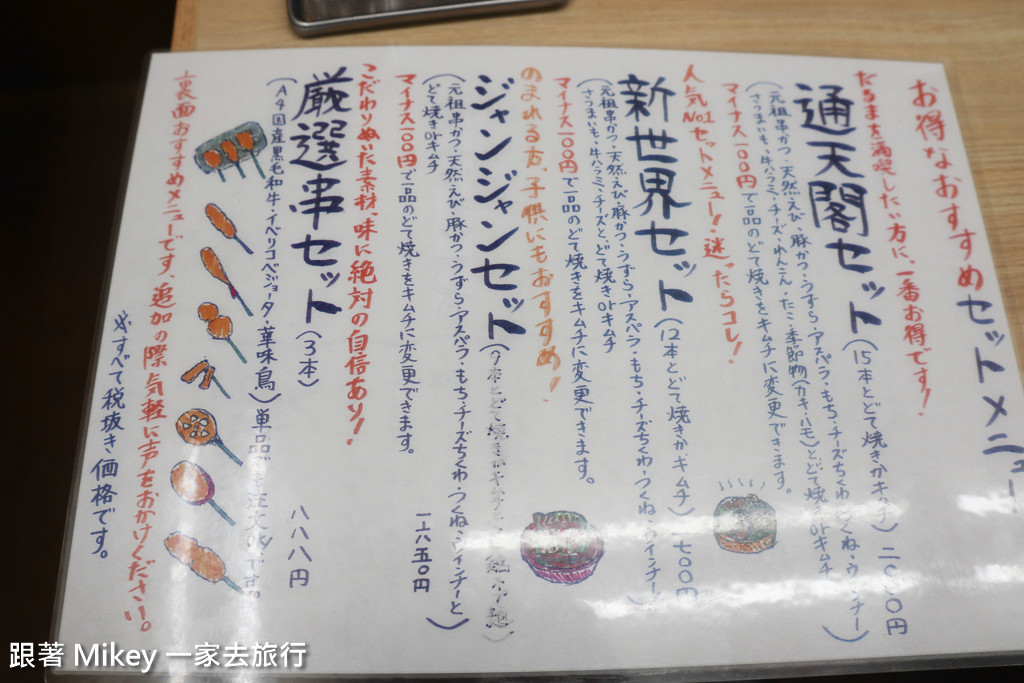 お得なおすすめセットメニュー
だるまを満喫したい方に、一番お得です!
通天閣セット(15本とどて焼きかキムチ)二〇〇〇円
(元祖串かつ・天然えび・豚かつ・うずら・アスパラ・もち・チーズちくわ・つくね・ウィンナー
さつまいも・牛ハラミ・チーズ・れんこん・たこ・季節物(カキ・ハモ)とどて焼きorキムチ)
マイナス一〇〇円で一品のどて焼きをキムチに変更できます。
人気No1セットメニュー!迷ったらコレ!
新世界セット(12本とどて焼きかキムチ)一七〇〇円
(元祖串かつ・天然えび・豚かつ・うずら・アスパラ・もち・チーズちくわ・つくね・ウィンナー
さつまいも・牛ハラミ・チーズとどて焼きorキムチ)
マイナス一〇〇円で一品のどて焼きをキムチに変更できます。
のまれる方、子供にもおすすめ!
ジャンジャンセット(9本とどて焼きかキムチ
(元祖串かつ・天然えび・豚かつ・うずら・アスパラ・もち・チーズちくわ・つくね・ウィンナーと
どて焼きorキムチ)
マイナス一〇〇円で一品のどて焼きをキムチに変更できます。
こだわりぬいた素材、味に絶対の自信あり!
厳選串セット(3本) 八八八円
(A4国産黒毛和牛・イベリコベジョータ・華味鳥)単品ご注文OKです。
裏面おすすめメニューです、追加の際気軽に声をおかけください。
※すべて税抜き価格です。
跟著 Mikey 一家去旅行